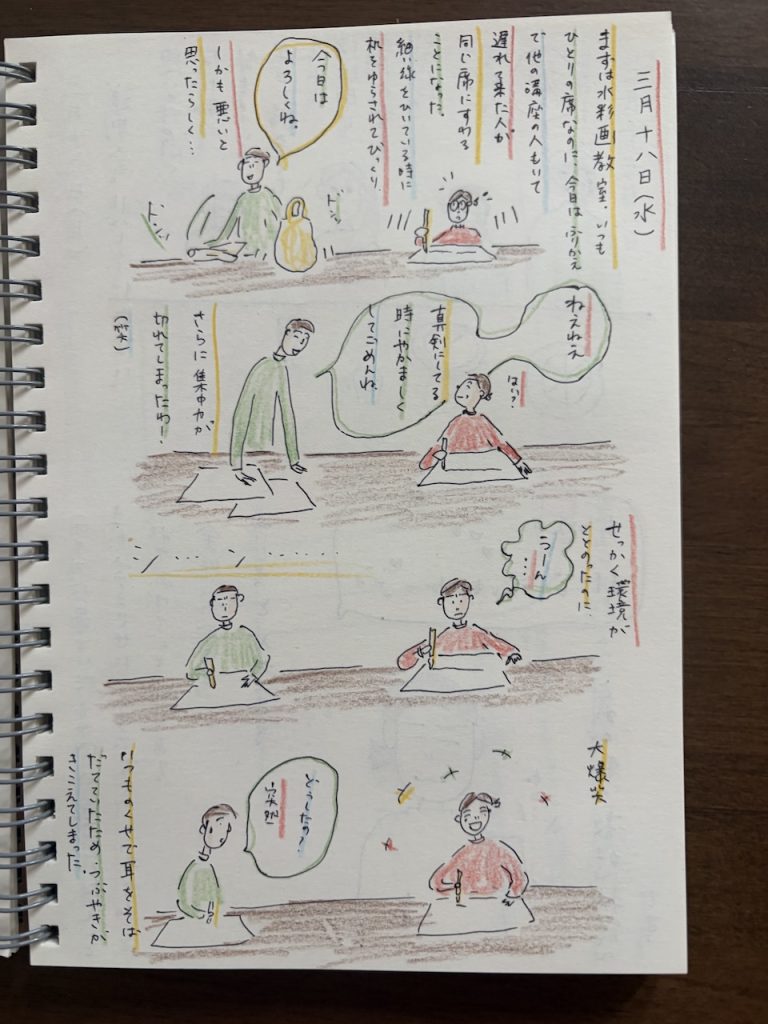 三月十八日(水)
まずは水彩画教室。いつも
ひとりの席なのに、今日はふりかえ
で他の講座の人もいて
遅れて来た人が
同じ席にすわる
ことになった。
細い線をひいている時に
机をゆらされてびっくり。
今日は
よろしくね。
しかも悪いと
思ったらしく…
ドン
ドン
ねえねえ
はい?
真剣にしてる
時にやかましく
してごめんね。
さらに集中力が
切れてしまったわ!
(笑)
せっかく環境が
ととのったのに、
うーん
…
大爆笑
どうしたの?
いつものくせで耳をそば
だてていたため、つぶやきが
きこえてしまった。